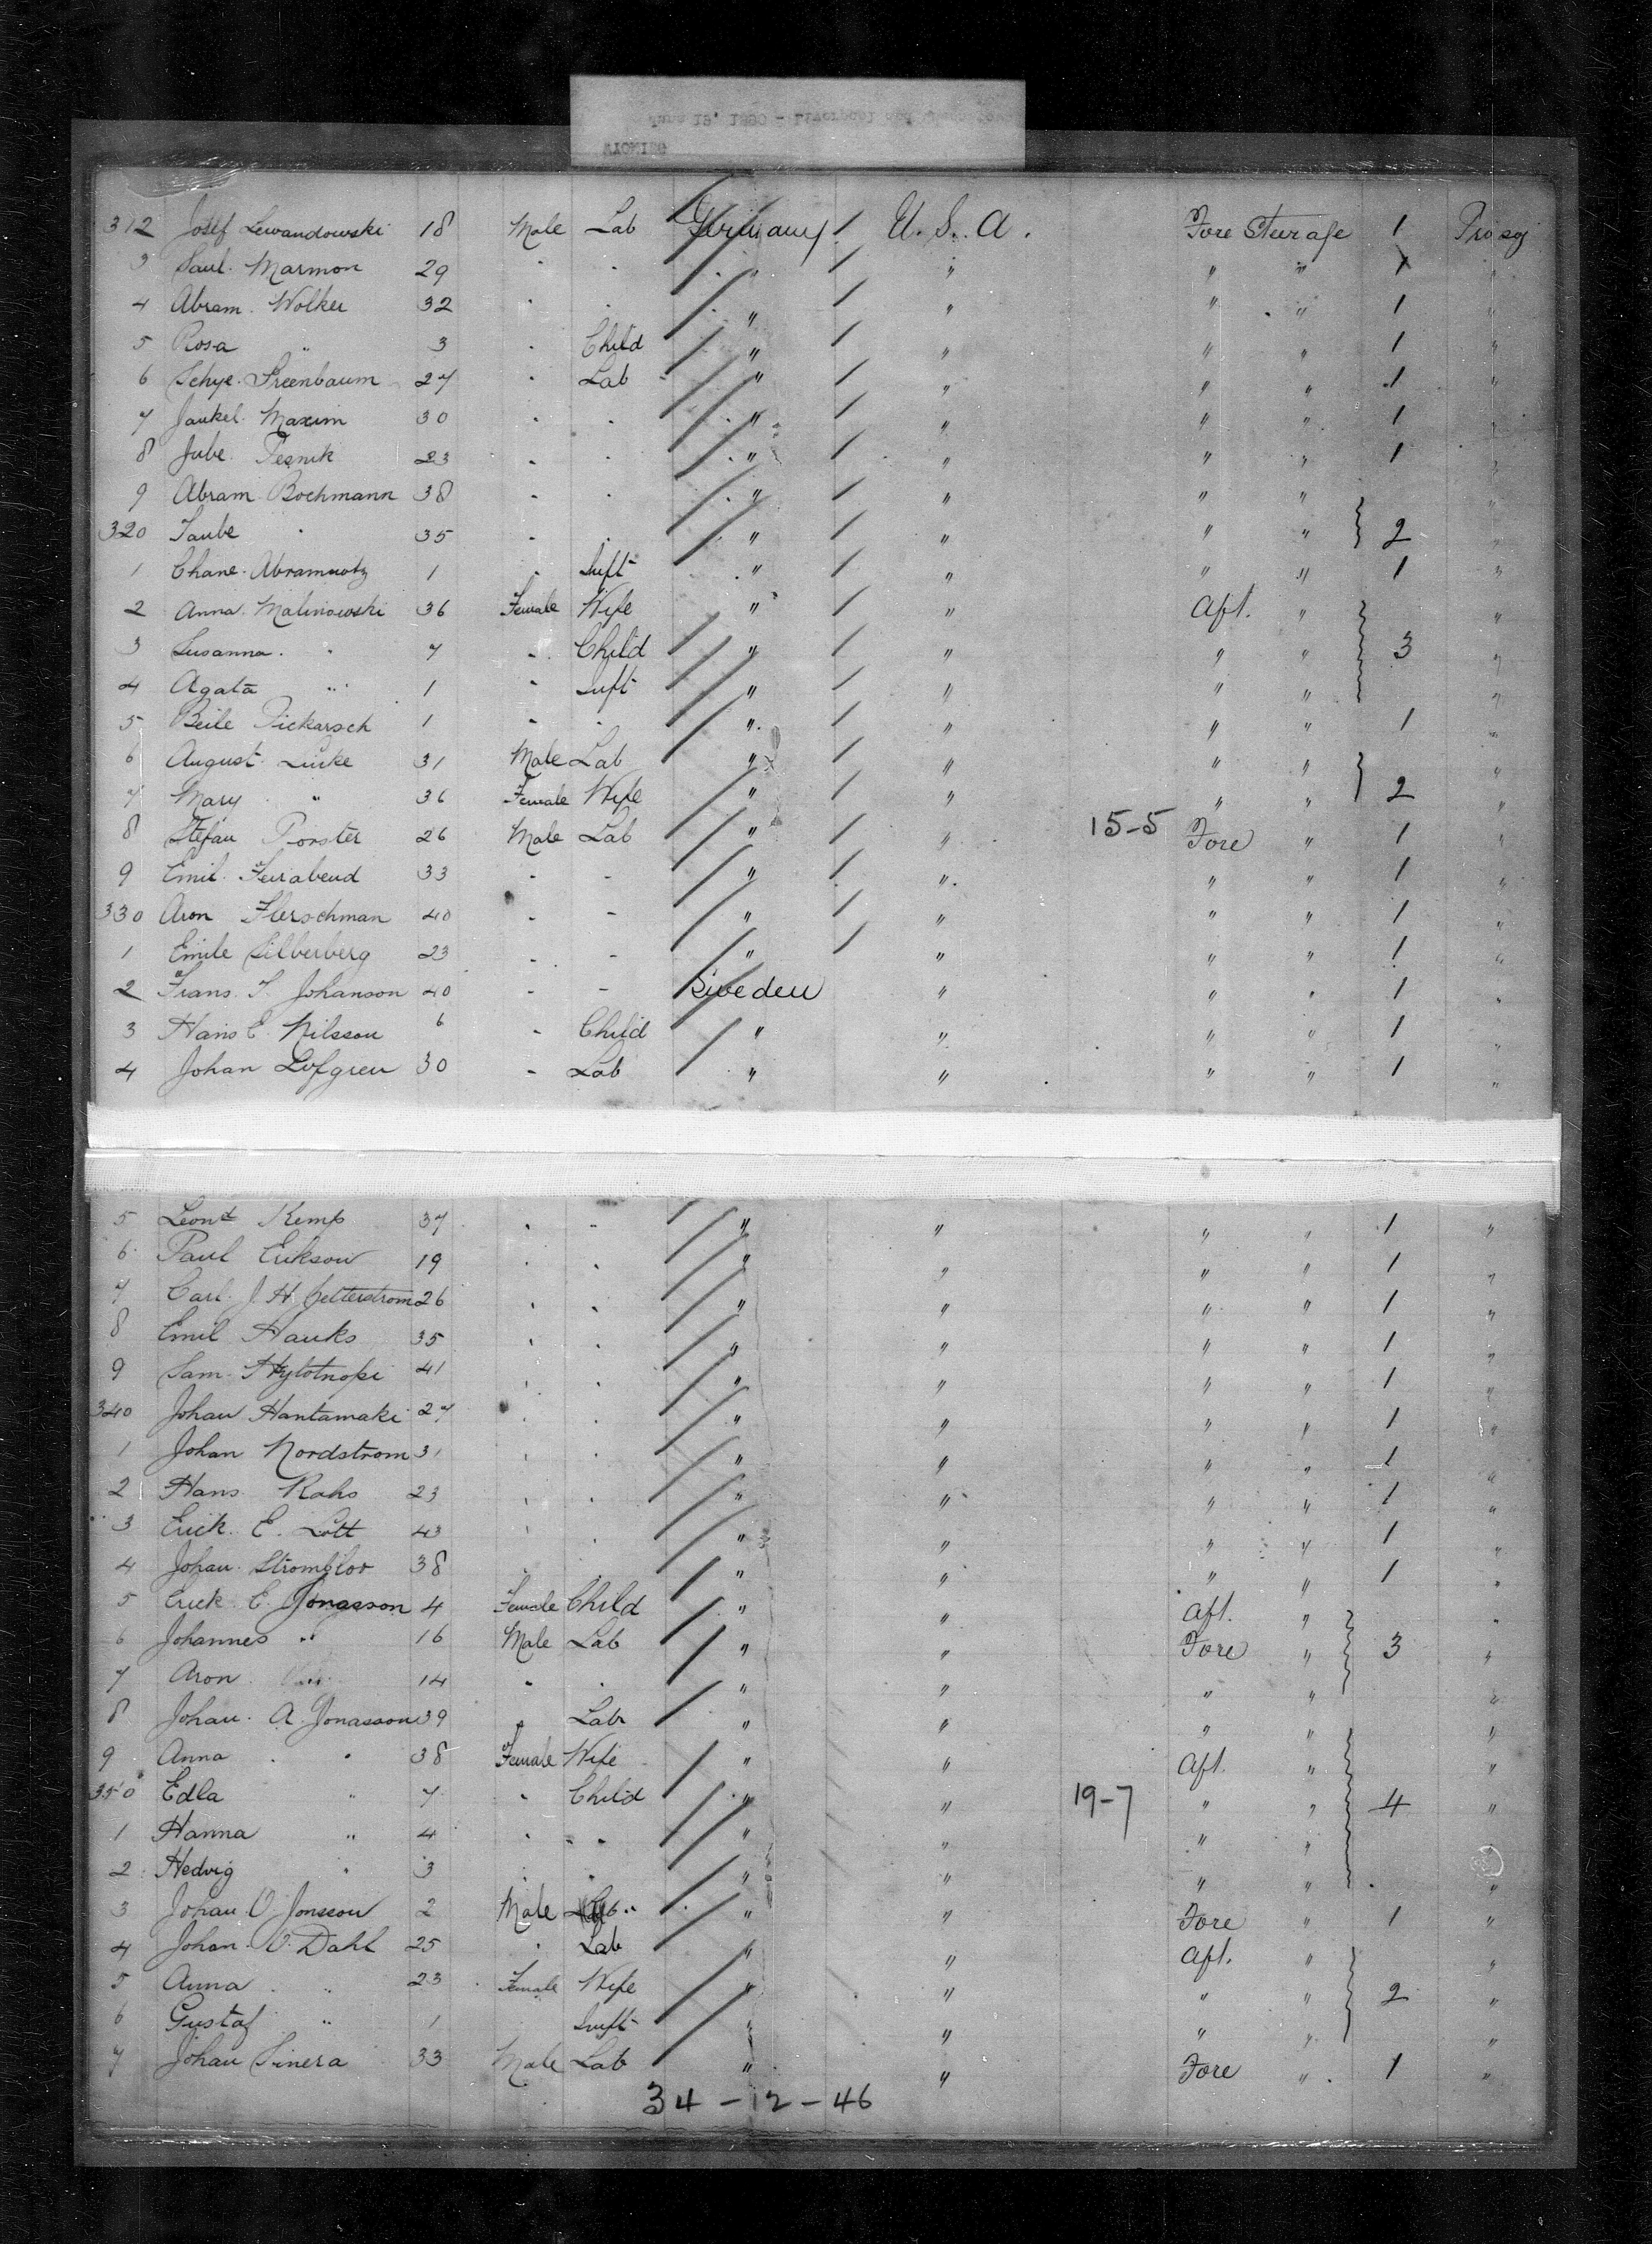 June 19, 1890 - Liverpool and Queenstown
WYOMING
312 Josef Lewandowski 18 Male Lab Germany / U. S. A. Fore Steerage 1
3 Saul Marmon 29 " " " / " " " 1 "
4 Abram Wolker 32 " " " / " " " 1 "
5 Rosa " 3 " Child " / " " " 1 "
6 Schye Greenbaum 27 " Lab " / " " " 1 "
7 Jankel Maxim 30 " " " / " " " 1 "
8 Jube 23 " " " / " " " 1 "
9 Abram Bochmann 38 " " " / " " " "
320 Taube " 35 " " " / " " " 2 "
1 Chane Abramwotz 1 " Inft " / " " " 1 "
2 Anna Malinowski 36 Female Wife " / " Aft. " "
3 Susanna " 7 " Child " / " " " 3 "
4 Agata " 1 " Inft " / " " " "
5 Beile Pickarsch 1 " " " / " " " 1 "
6 August Lurke 31 Male Lab " / " " " "
7 Mary " 36 Female Wife " / " " " 2 "
8 Stefan Porster 26 Male Lab " / " 15-5 Fore " 1 "
9 Emil Feirabend 33 " " " / " " " 1 "
330 Aron Flerschman 40 " " " / " " " 1 "
1 Emile Silberberg 23 " " " / " " " 1 "
2 Frans T. Johanson 40 " " Sweden " " " 1 "
3 Hans E. Nilsson 6 " Child " " " " 1 "
4 Johan Lofgren 30 " Lab " " " " 1 "
5 Leond Kemp 37 " " " " " " 1 "
6 Paul Erikson 19 " " " " " " 1 "
7 Carl J. H. Zetterstrom 26 " " " " " " 1 "
8 Emil Hauks 35 " " " " " " 1 "
9 Sam 41 " " " " " " 1 "
340 Johan Hantamaki 27 " " " " " " 1 "
1 Johan Nordstrom 31 " " " " " " 1 "
2 Hans Rahs 23 " " " " " " 1 "
3 Erick E. Lott 43 " " " " " " 1 "
4 Johan 38 " " " " " " 1 "
5 Erick E. Jonasson 4 Female Child " " Aft. " "
6 Johannes " 16 Male Lab " " Fore " 3 "
7 Aron 14 " " " " " " "
8 Johan A. Jonasson 39 " Labr " " " " "
9 Anna " 38 Female Wife " " Aft. " "
350 Edla " 7 " Child " " 19-7 " " 4 "
1 Hanna " 4 " " " " " "
2 Hedvig " 3 " " " " " " "
3 Johan O. Jonsson 2 Male " " Fore " 1 "
4 Johan O. Dahl 25 " Lab " " Aft. " "
5 Anna " 23 Female Wife " " " " 2 "
6 Gustaf " 1 Inft " " " " "
7 Johan Sinera 33 Male Lab " " Fore " 1 "
34-12-46